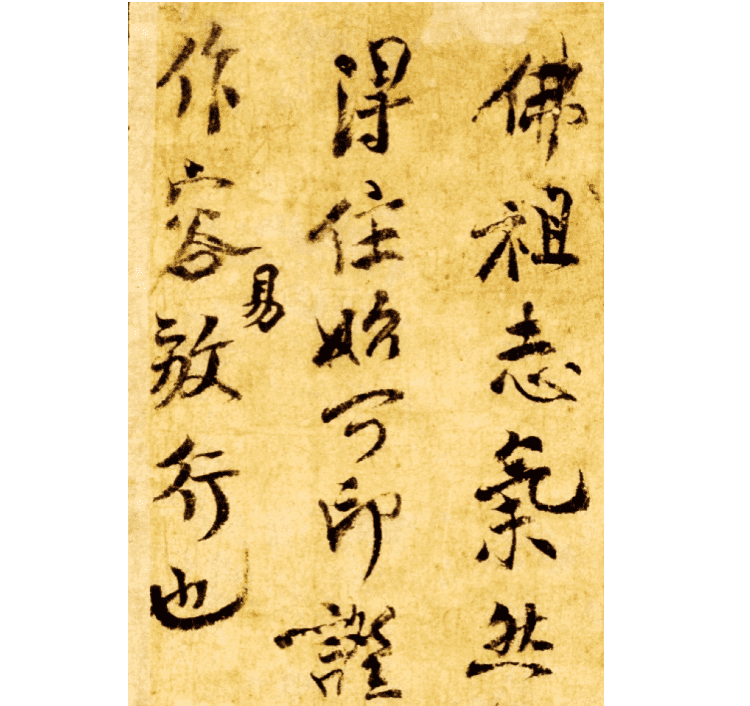 佛祖志氣然
得住始可印證
作容易放行也